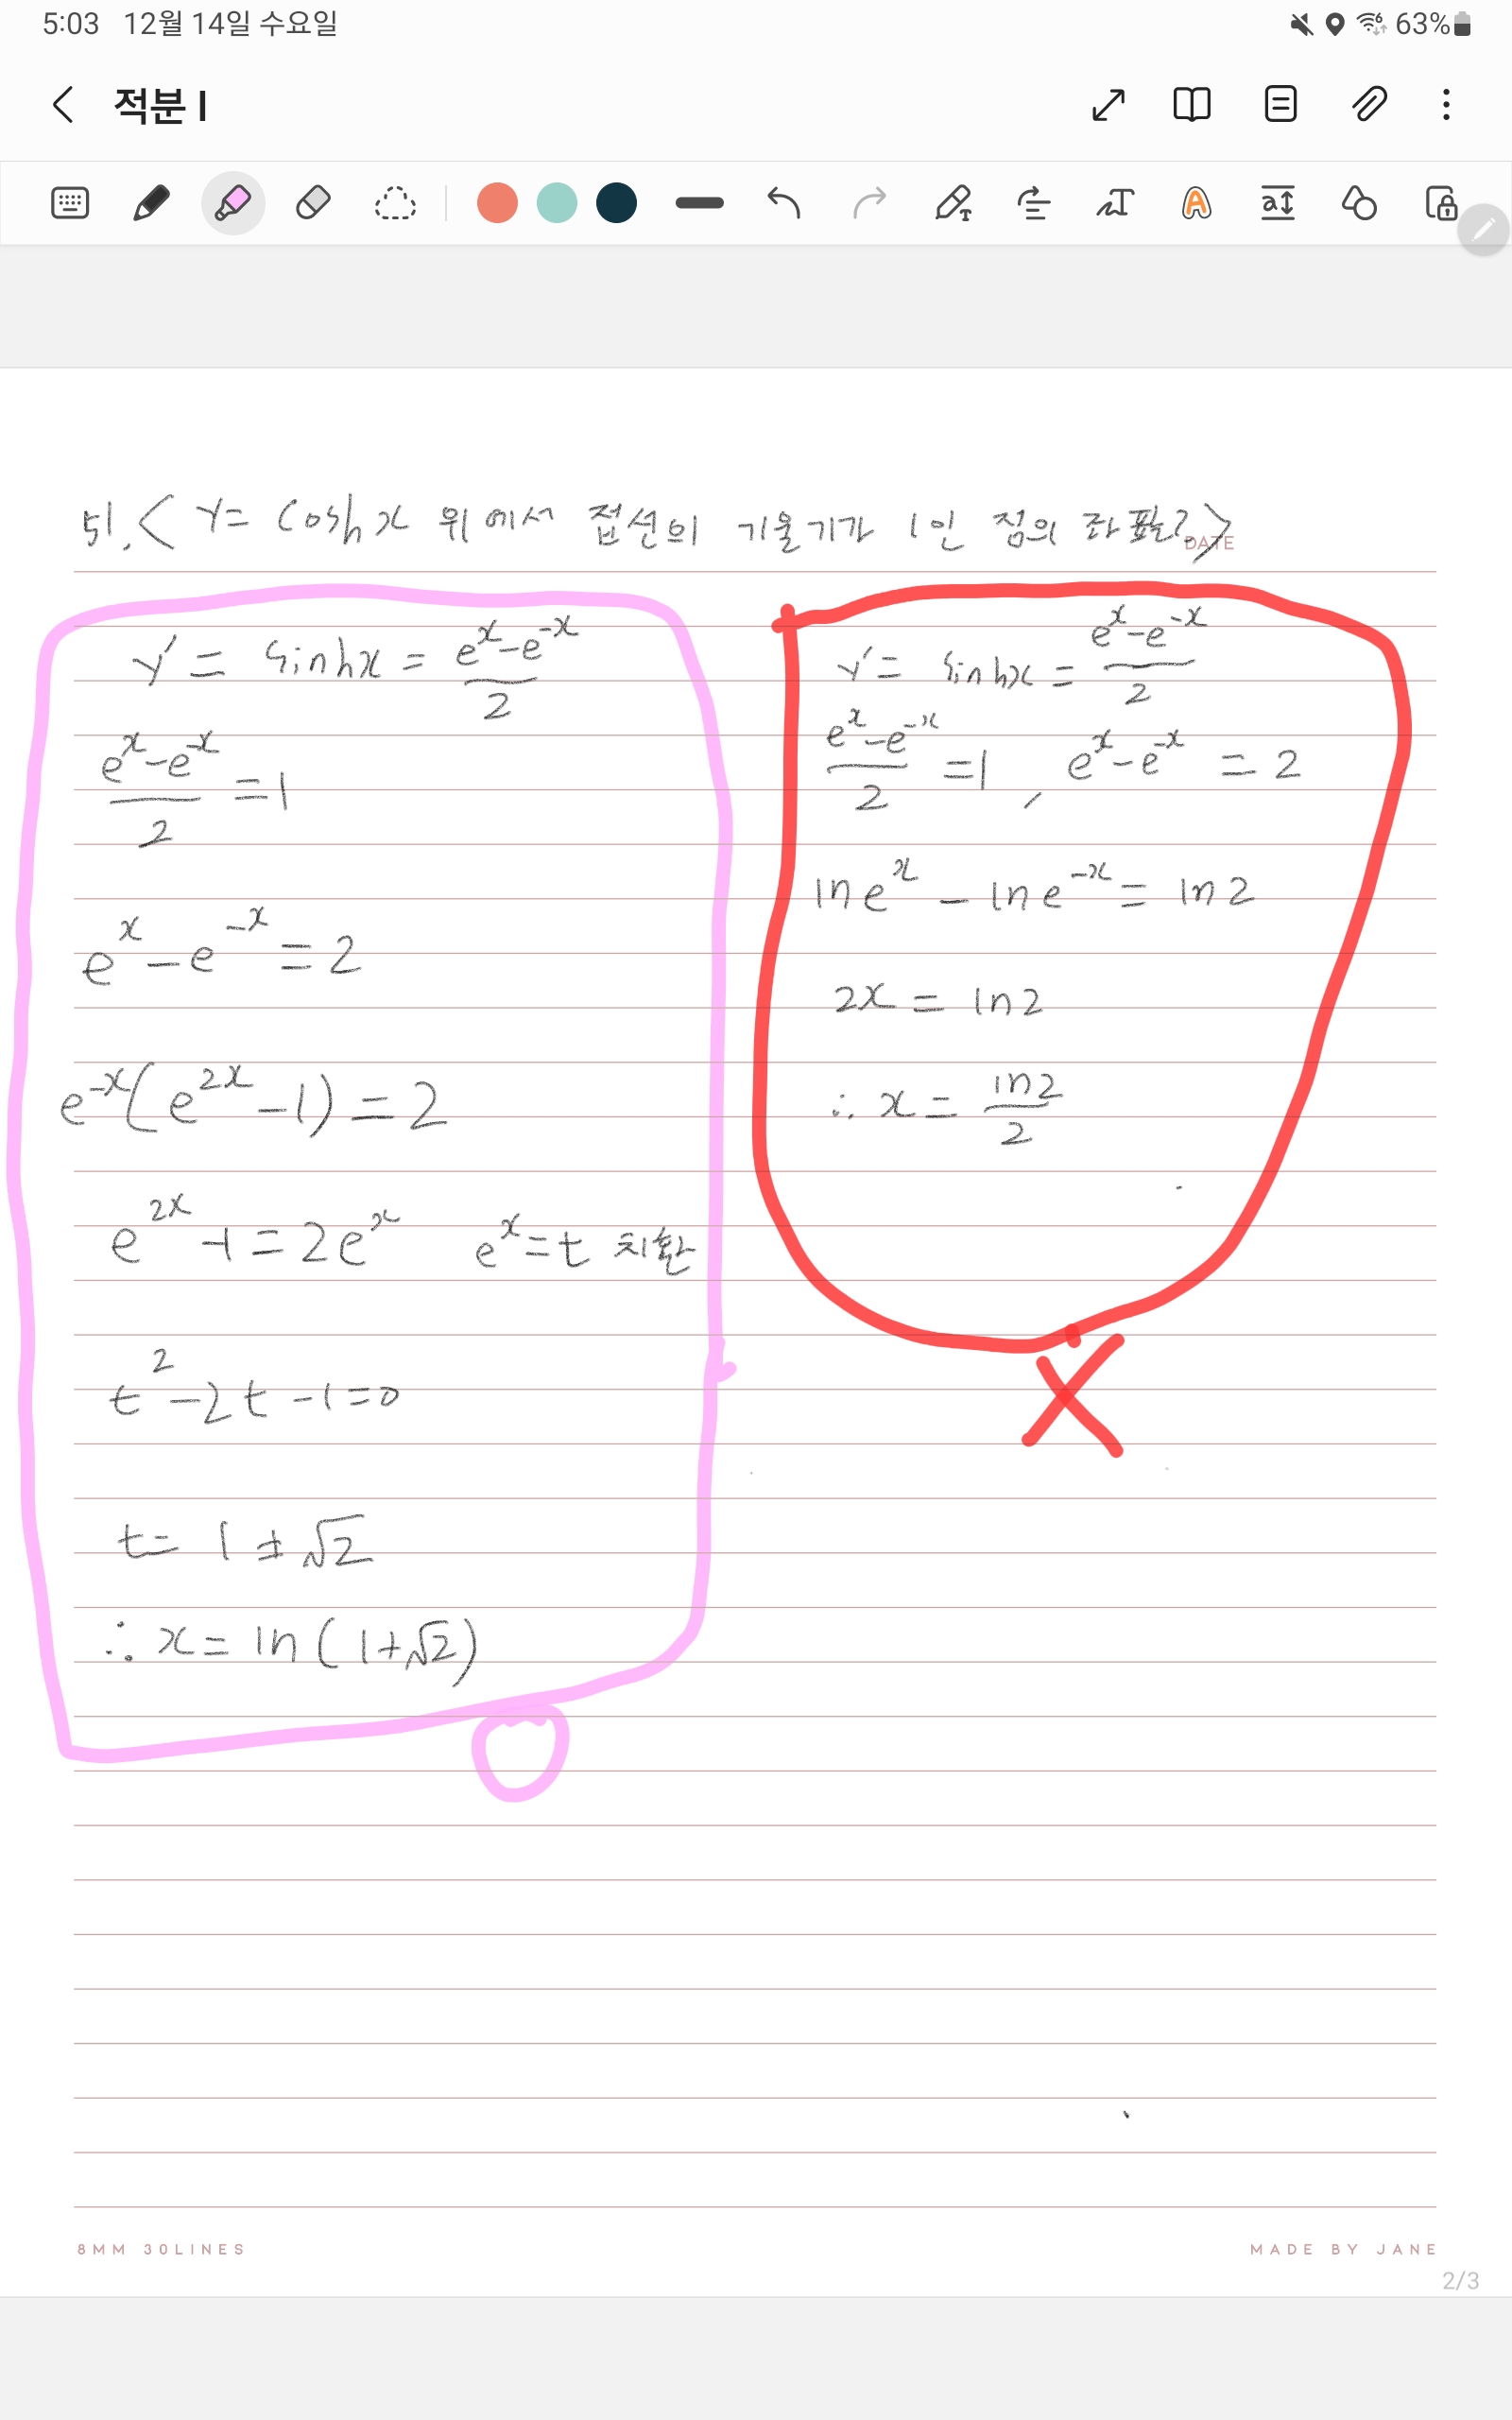 5:03 12월 14일 수요일
63%
적분 I
51. < y = coshx 위에서 접선의 기울기가 1인 점의 좌표는? >
DATE
y' = sinhx = (e^x - e^-x)/2
(e^x - e^-x)/2 = 1
e^x - e^-x = 2
e^-x(e^2x - 1) = 2
e^2x - 1 = 2e^x e^x = t 치환
t^2 - 2t - 1 = 0
t = 1 ± √2
∴ x = ln(1+√2)
y' = sinhx = (e^x - e^-x)/2
(e^x - e^-x)/2 = 1, e^x - e^-x = 2
ln e^x - ln e^-x = ln2
2x = ln2
∴ x = ln2/2
8MM 30LINES
MADE BY JANE
2/3